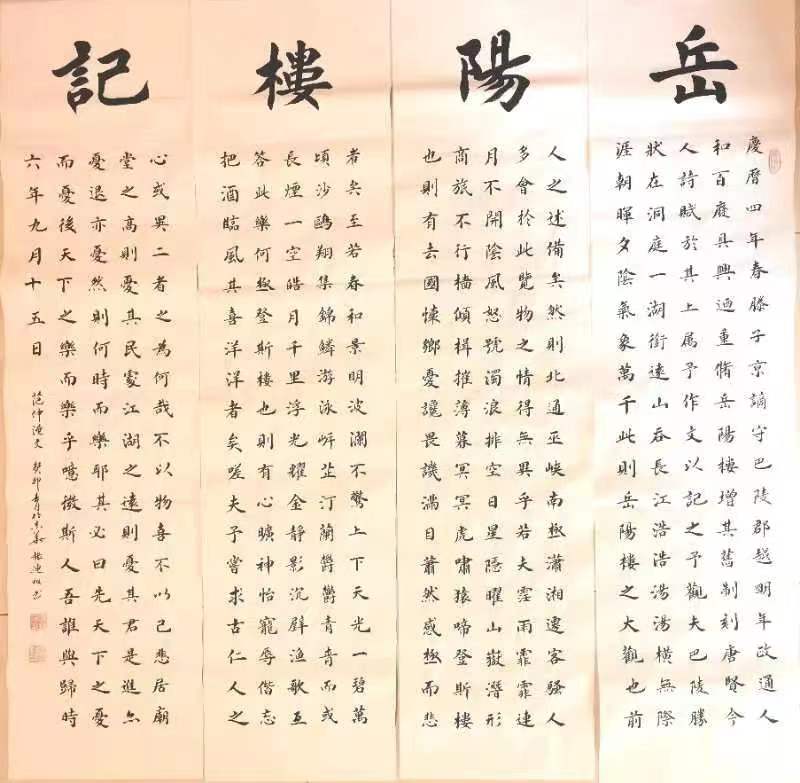 岳陽樓記
慶曆四年春滕子京謫守巴陵郡越明年政通人
和百廢具興迺重脩岳陽樓增其舊制刻唐賢今
人詩賦於其上属予作文以記之予觀夫巴陵勝
狀在洞庭一湖銜遠山吞長江浩浩湯湯橫無際
涯朝暉夕陰氣象萬千此則岳陽樓之大觀也前
人之述備矣然則北通巫峽南極瀟湘遷客騷人
多會於此覽物之情得無異乎若夫霪雨霏霏連
月不開陰風怒號濁浪排空日星隱曜山嶽潛形
商旅不行檣傾楫摧薄暮冥冥虎嘯猿啼登斯樓
也則有去國懷鄉憂讒畏譏滿目蕭然感極而悲
者矣至若春和景明波瀾不驚上下天光一碧萬
頃沙鷗翔集錦鱗游泳岸芷汀蘭鬱鬱青青而或
長煙一空皓月千里浮光耀金靜影沉璧漁歌互
答此樂何極登斯樓也則有心曠神怡寵辱偕忘
把酒臨風其喜洋洋者矣嗟夫予嘗求古仁人之
心或異二者之為何哉不以物喜不以己悲居廟
堂之高則憂其民處江湖之遠則憂其君是進亦
憂退亦憂然則何時而樂耶其必曰先天下之憂
而憂後天下之樂而樂乎噫微斯人吾誰與歸時
六年九月十五日
范仲淹文 癸卯春月於京華